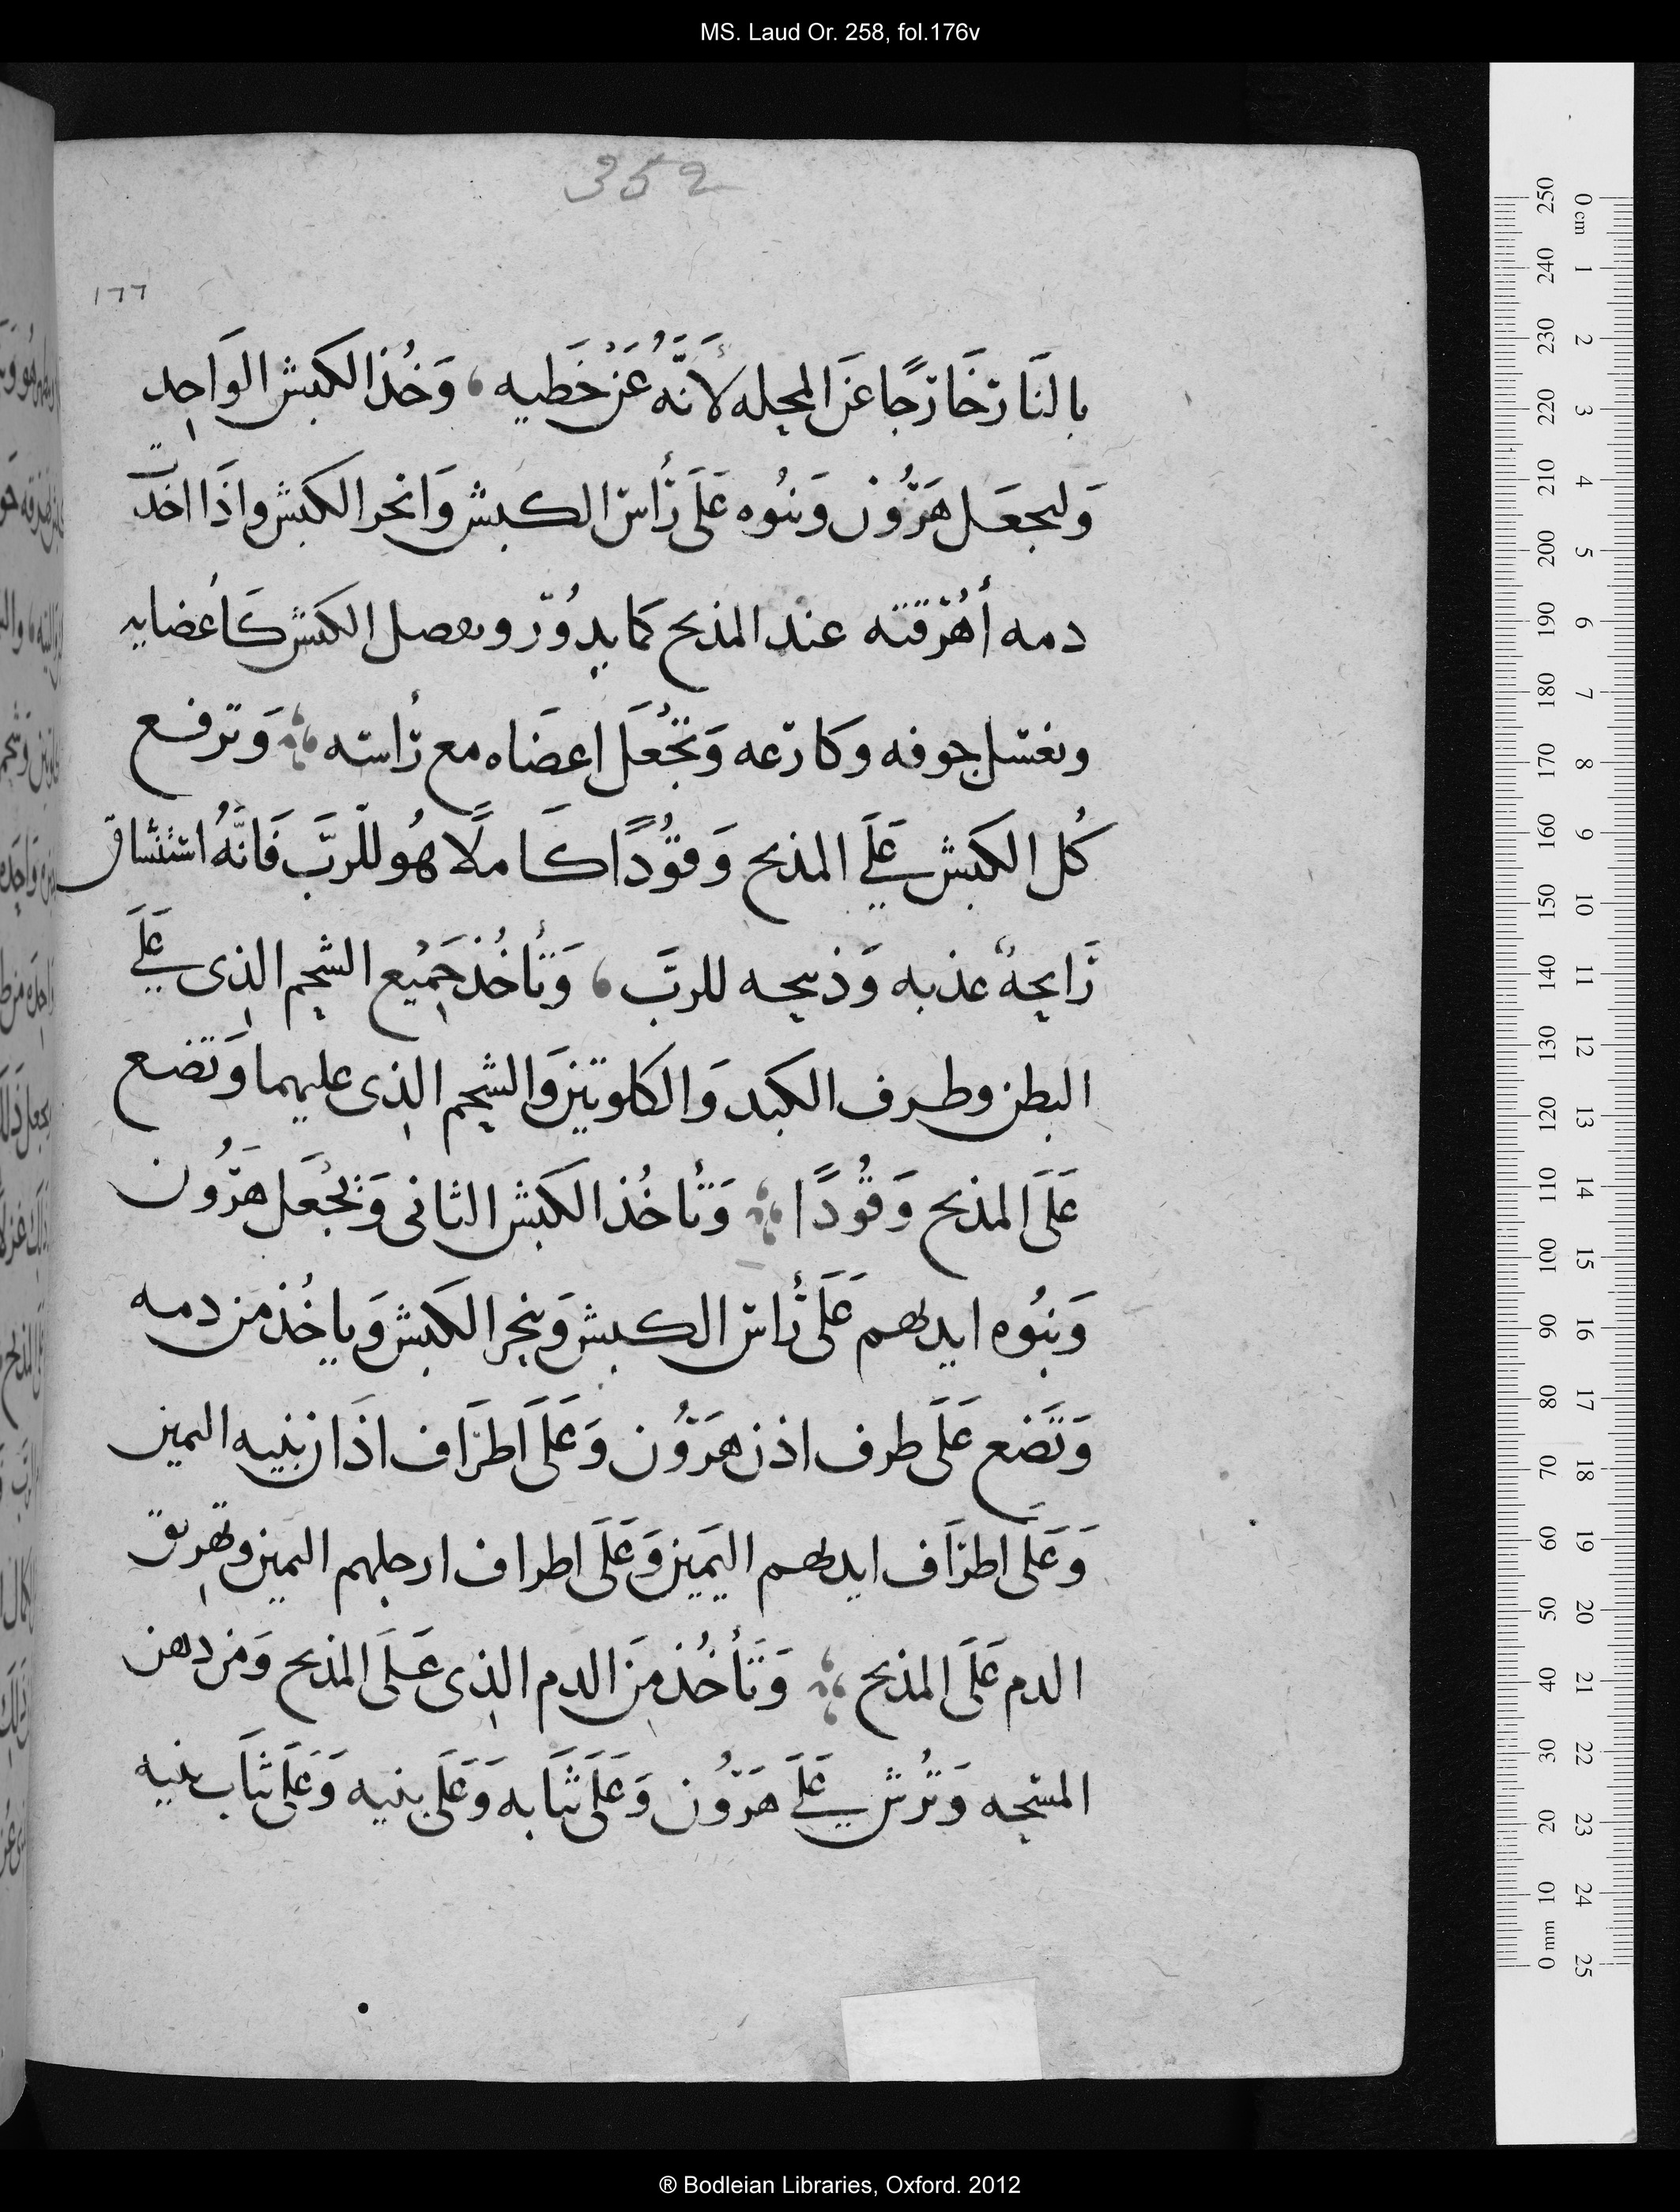 MS. Laud Or. 258, fol.176v
352
١٦٦
بالنَار خَارجًا عَن المحله لأنَّهُ عَنْ خَطيه، وَخُذ الكبش الوَاحِد
وَليجعَل هَرُون وَبنُوه عَلَى رَأس الكبش وَانحر الكبش واذَا اخذت
دمه أهُرقته عند المذبح كما يدُوّر وتفصل الكبش كَأعْضايه
وتغسل جوفه وكارعه وَتجْعَل اعضَاه مع رأسه ؞ وَترفع
كُل الكبش عَلَى المذبح وَقوُدًا كَاملًا هُو للرّبَّ فَانَّهُ استنشاق
رَايحهٌ عذبه وَذبيحه للربَّ، وَتأخُذ جَمِيْع الشحم الذِى عَلَى
البطن وطرف الكبد وَالكلوتين وَالشحم الذِى عليهما وَتضع
عَلَى المذبح وَقُودًا ؞ وَتأخُذ الكبش الثانى وَتجْعَل هَرُون
وَبنُوه ايديهم عَلَى رأس الكبش وَينحر الكبش وَياخُذ من دمه
وَتَضع عَلَى طرف اذن هَرُون وَعَلَى اطرَاف اذَان بنيه اليمين
وَعَلَى اطرَاف ايديهم اليَمين وَعَلَى اطراف ارجلهم اليمين وتهرِيق
الدم عَلَى المذبح ؞ وَتَأخُذ مِنَ الدم الذِى عَلَى المذبح وَمن دهن
المسحه وَترُش عَلَى هَرُون وَعَلَى ثيَابه وَعَلَى بنيه وَعَلَى ثيَاب بنيه
0 cm 1 2 3 4 5 6 7 8 9 10 11 12 13 14 15 16 17 18 19 20 21 22 23 24 25
250 240 230 220 210 200 190 180 170 160 150 140 130 120 110 100 90 80 70 60 50 40 30 20 10 0 mm
® Bodleian Libraries, Oxford. 2012